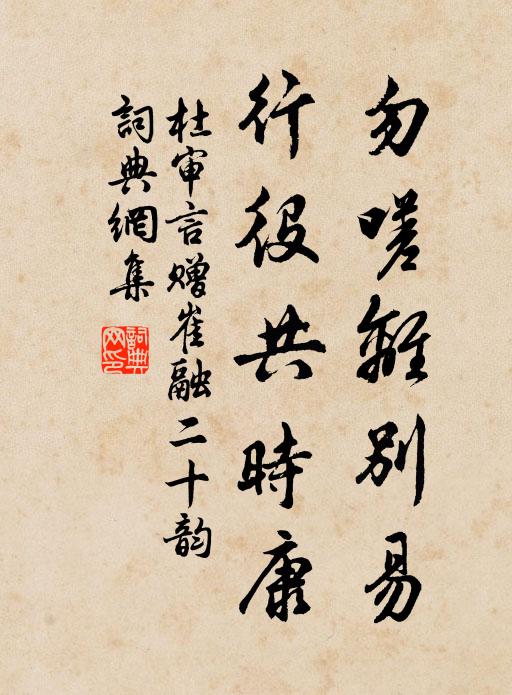 勿嗟離別易
行役共時康
杜审言赠崔融二十韵
詞典網集
詞典網印